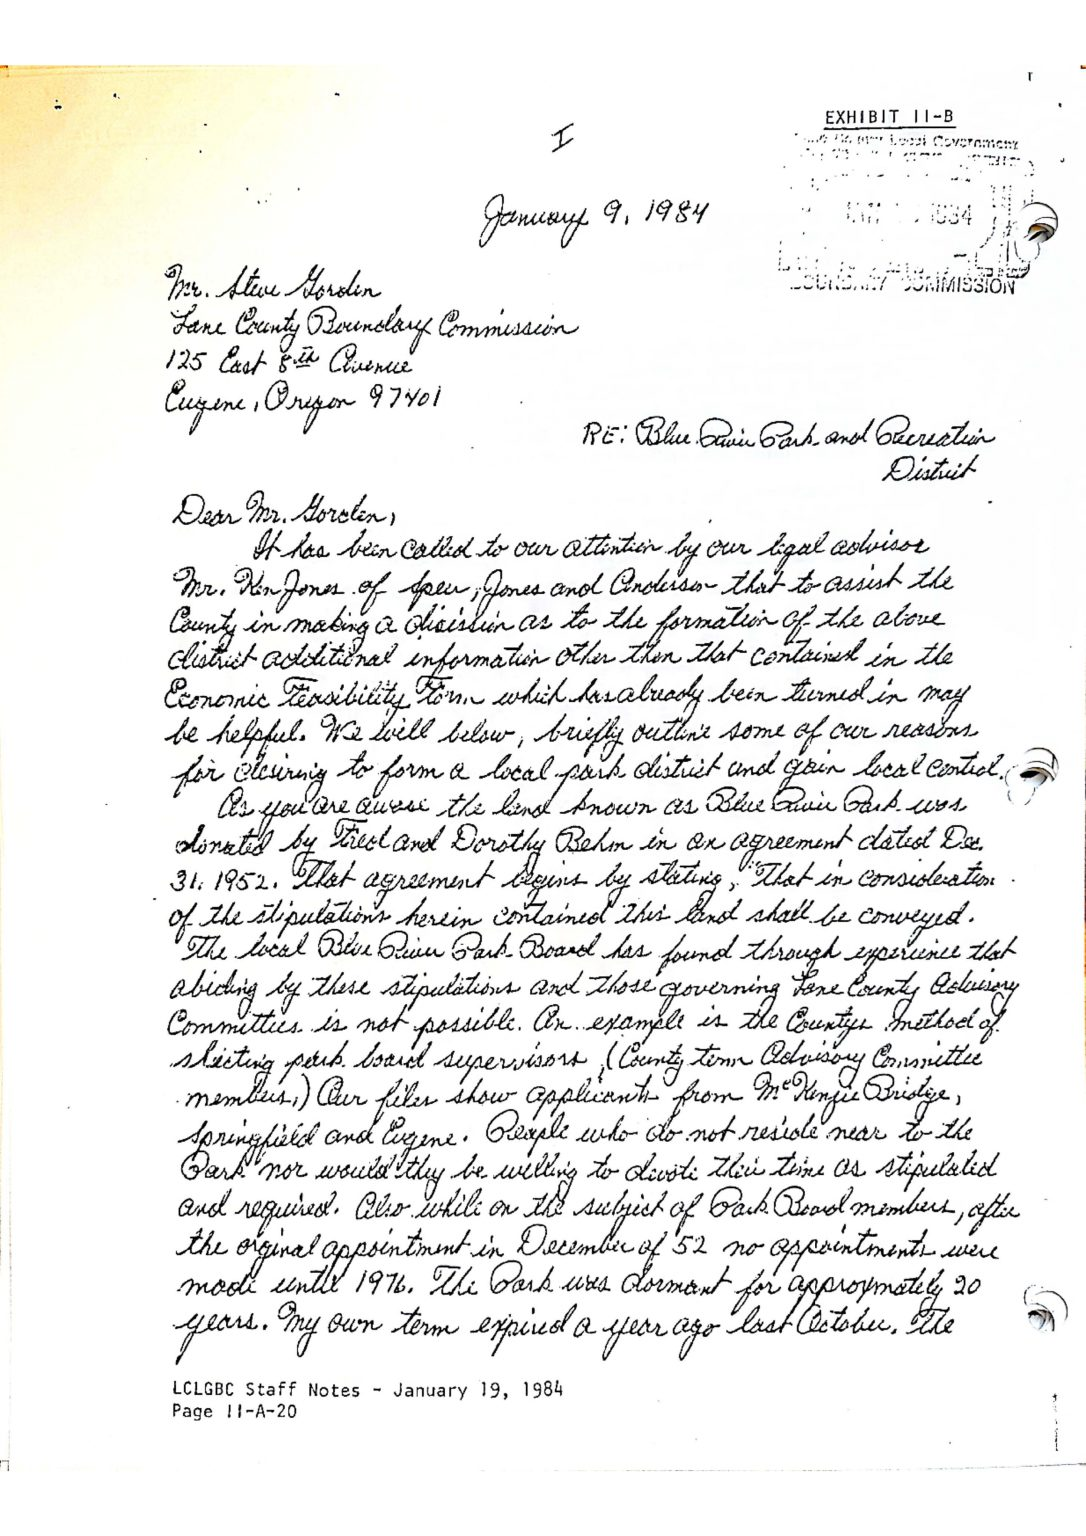 EXHIBIT II-B
Local Government
I
1984
BOUNDARY COMMISSION
January 9, 1984
Mr. Steve Gorden
Lane County Boundary Commission
125 East 8th Avenue
Eugene, Oregon 97401
RE: Blue River Park and Recreation
District
Dear Mr. Gorden,
It has been called to our attention by our legal advisor
Mr. Ken Jones of Speer, Jones and Anderson that to assist the
County in making a dicision as to the formation of the above
district additional information other then that contained in the
Economic Feasibility Form which has already been turned in may
be helpful. We will below, briefly outline some of our reasons
for desiring to form a local park district and gain local control.
As you are aware the land known as Blue River Park was
donated by Fred and Dorothy Behm in an agreement dated Dec.
31, 1952. That agreement begins by stating, "That in consideration
of the stipulations herein contained this land shall be conveyed.
The local Blue River Park Board has found through experience that
abiding by these stipulations and those governing Lane County Advisory
Committies is not possible. An example is the Countys method of
slecting park board supervisors, (County term Advisory Committee
members,) Our files show applicants from McKenzie Bridge,
Springfield and Eugene. People who do not reside near to the
Park nor would they be willing to divote their time as stipulated
and required. Also while on the subject of Park Board members, after
the orginal appointment in December of 52 no appointments were
made until 1976. The Park was dormant for approxmately 20
years. My own term expired a year ago last October. The
LCLGBC Staff Notes - January 19, 1984
Page II-A-20